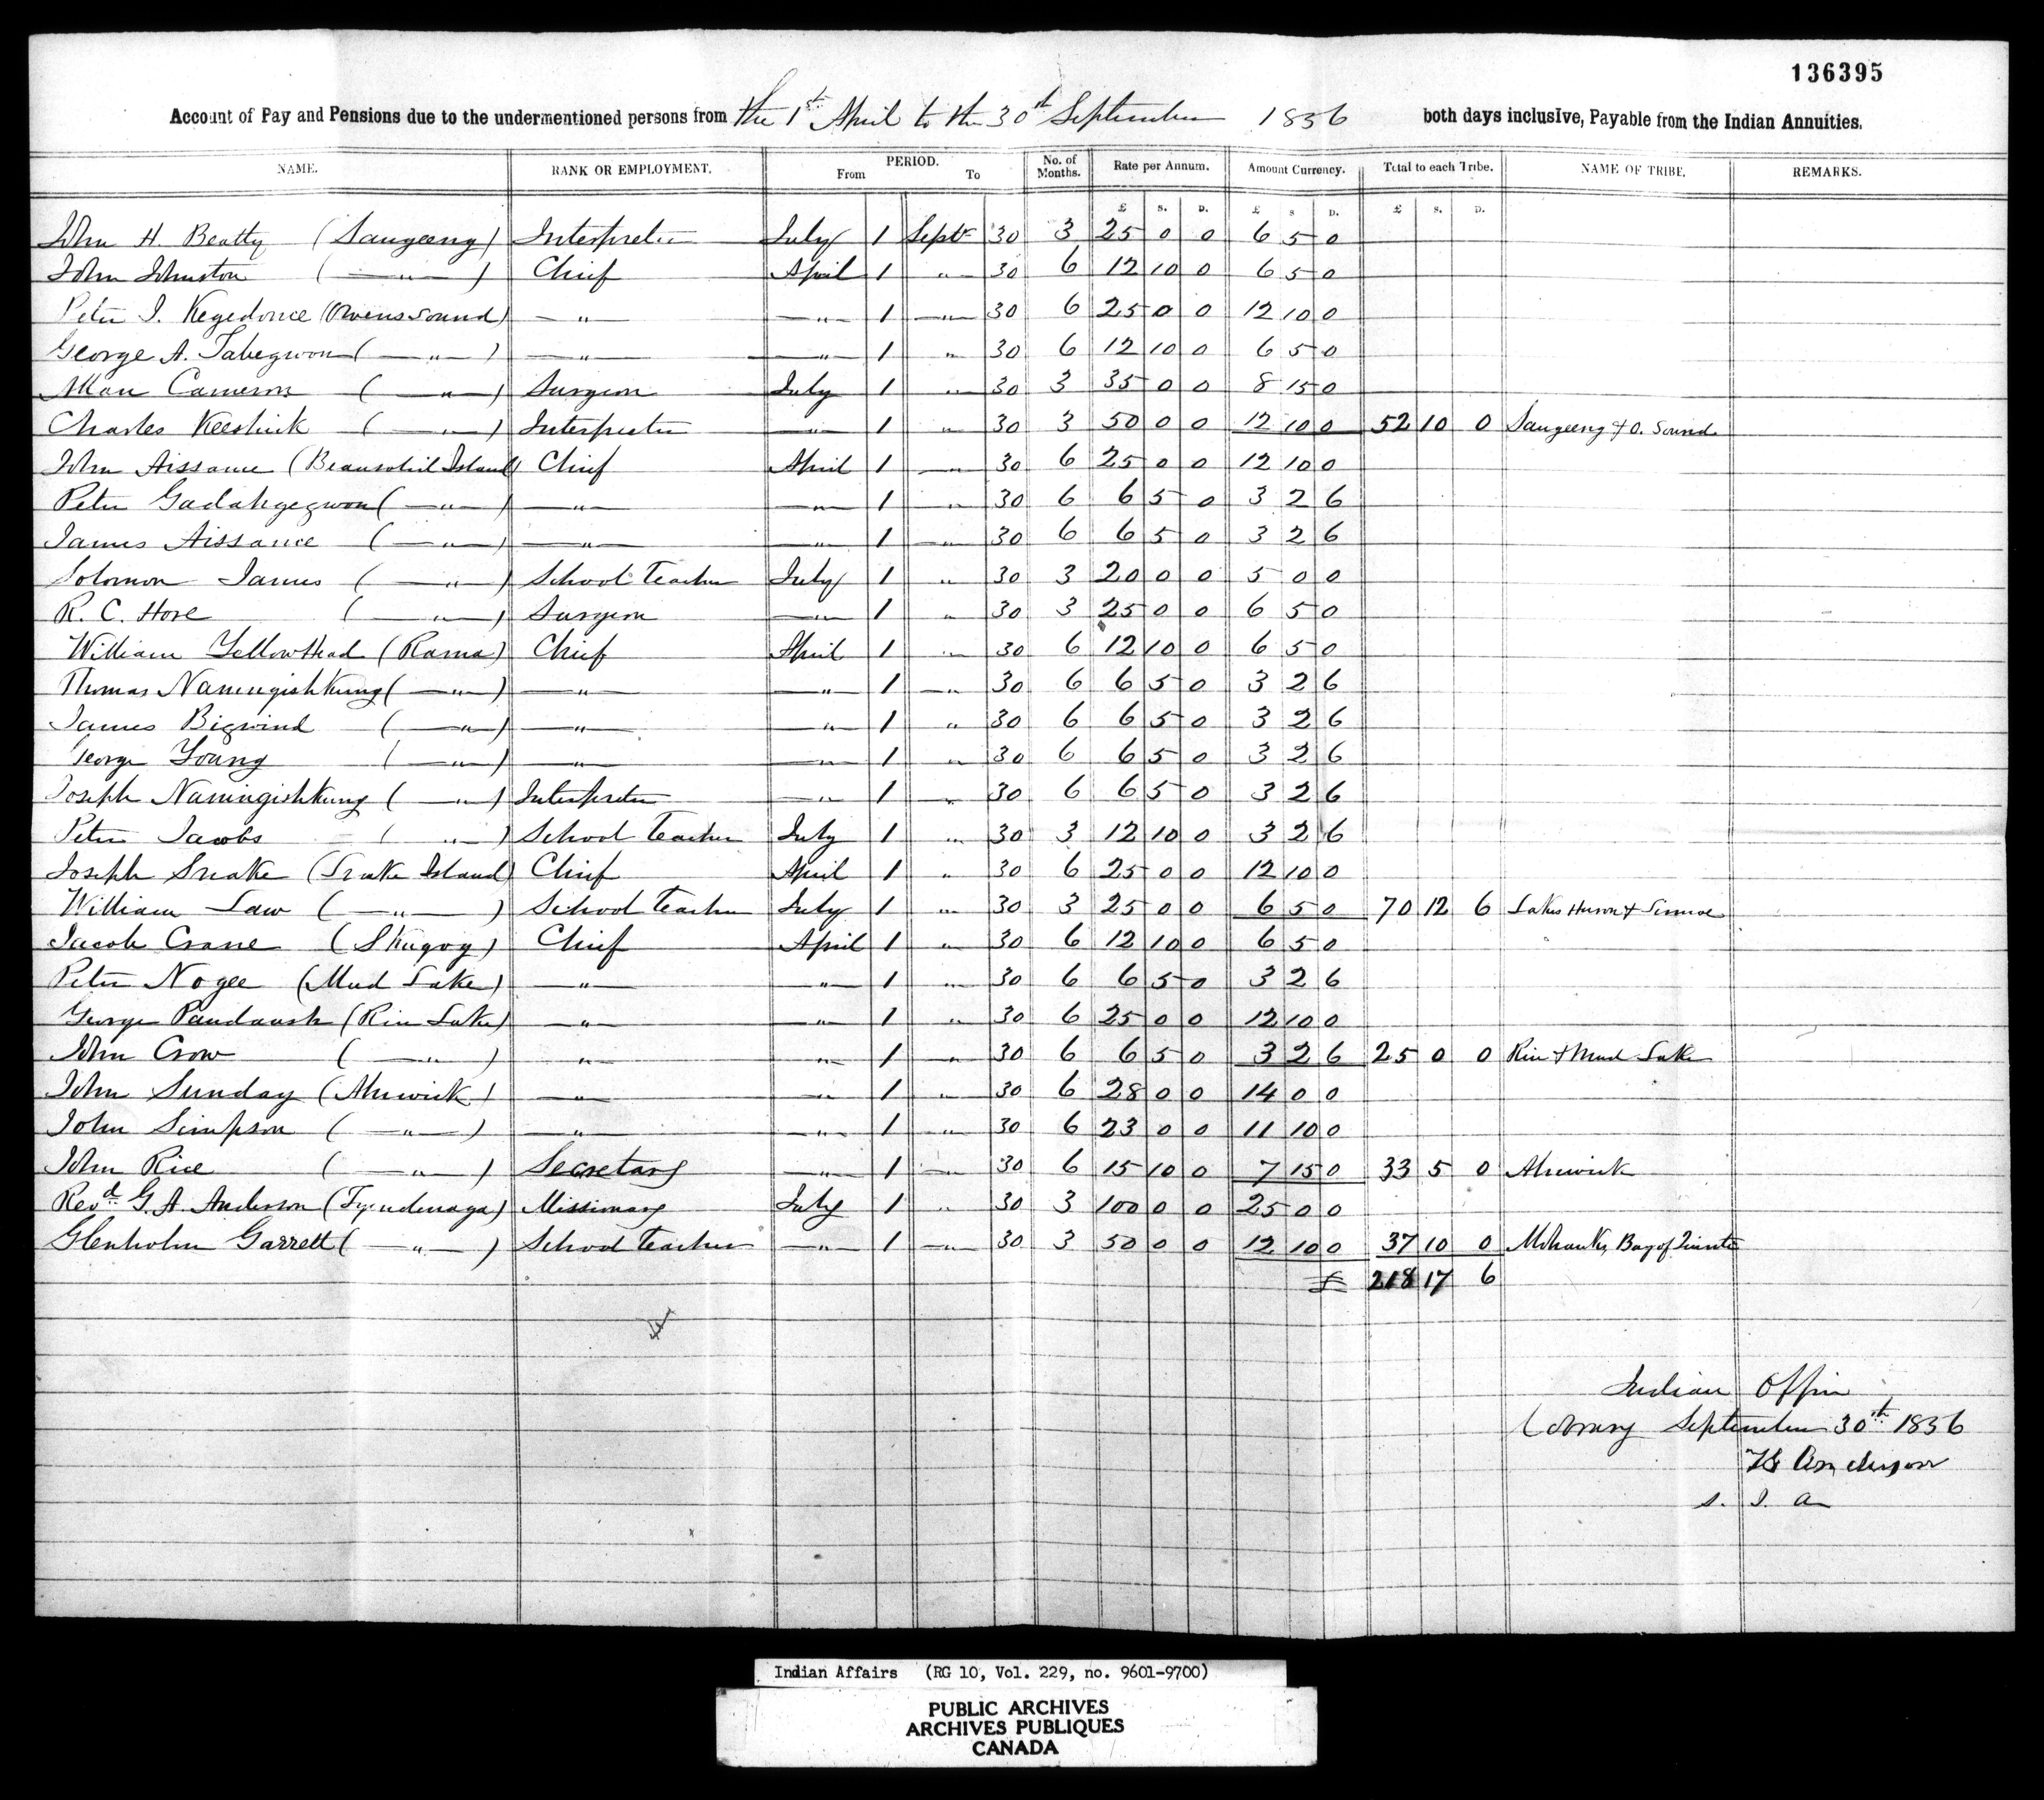 136395
Account of Pay and Pensions due to the undermentioned persons from the 1st April to the 30th September 1856 both days inclusive, Payable from the Indian Annuities.
NAME. RANK OR EMPLOYMENT. PERIOD. From To No. of Months. Rate per Annum. Amount Currency. Total to each Tribe. NAME OF TRIBE. REMARKS.
£ s. D. £ s D. £ s. D.
John H. Beatty (Saugeeng) Interpreter July 1 Septr 30 3 25 0 0 6 5 0
John Johnston ( —"— ) Chief April 1 " 30 6 12 10 0 6 5 0
Peter J. Kegedonce (Owens Sound) —"— —"— 1 —"— 30 6 25 0 0 12 10 0
George A. Tabegwon ( —"— ) —"— —"— 1 " 30 6 12 10 0 6 5 0
Allan Cameron ( —"— ) Surgeon July 1 " 30 3 35 0 0 8 15 0
Charles Keeshick ( —"— ) Interpreter —"— 1 " 30 3 50 0 0 12 10 0 52 10 0 Saugeeng & O. Sound
John Aissance (Beausoliel Island) Chief April 1 —"— 30 6 25 0 0 12 10 0
Peter Gadahgegwon ( —"— ) —"— —"— 1 —"— 30 6 6 5 0 3 2 6
James Aissance ( —"— ) —"— —"— 1 —"— 30 6 6 5 0 3 2 6
Solomon James ( —"— ) School Teacher July 1 " 30 3 20 0 0 5 0 0
R. C. Hore ( —"— ) Surgeon —"— 1 " 30 3 25 0 0 6 5 0
William Yellowhead (Rama) Chief April 1 " 30 6 12 10 0 6 5 0
Thomas Naningishkung ( —"— ) —"— —"— 1 —"— 30 6 6 5 0 3 2 6
James Bigwind ( —"— ) —"— —"— 1 " 30 6 6 5 0 3 2 6
George Young ( —"— ) —"— —"— 1 " 30 6 6 5 0 3 2 6
Joseph Naningishkung ( —"— ) Interpreter —"— 1 —"— 30 6 6 5 0 3 2 6
Peter Jacobs ( —"— ) School Teacher July 1 " 30 3 12 10 0 3 2 6
Joseph Snake (Snake Island) Chief April 1 " 30 6 25 0 0 12 10 0
William Law ( —"— ) School Teacher July 1 " 30 3 25 0 0 6 5 0 70 12 6 Lakes Huron & Simcoe
Jacob Crane (Skugog) Chief April 1 " 30 6 12 10 0 6 5 0
Peter Nogee (Mud Lake) —"— —"— 1 " 30 6 6 5 0 3 2 6
George Paudaush (Rice Lake) —"— —"— 1 " 30 6 25 0 0 12 10 0
John Crow ( —"— ) —"— —"— 1 " 30 6 6 5 0 3 2 6 25 0 0 Rice & Mud Lake
John Sunday (Alnwick) —"— —"— 1 " 30 6 28 0 0 14 0 0
John Simpson ( —"— ) —"— —"— 1 " 30 6 23 0 0 11 10 0
John Rice ( —"— ) Secretary —"— 1 —"— 30 6 15 10 0 7 15 0 33 5 0 Alnwick
Revd. G. A. Anderson (Tyendenaga) Missionary July 1 " 30 3 100 0 0 25 0 0
Glenholm Garrett ( —"— ) School Teacher —"— 1 —"— 30 3 50 0 0 12 10 0 37 10 0 Mohawks, Bay of Quinté
£ 218 17 6
Indian Office
Cobourg September 30th 1856
TG Anderson
S. I. A
Indian Affairs (RG 10, Vol. 229, no. 9601-9700)
PUBLIC ARCHIVES
ARCHIVES PUBLIQUES
CANADA